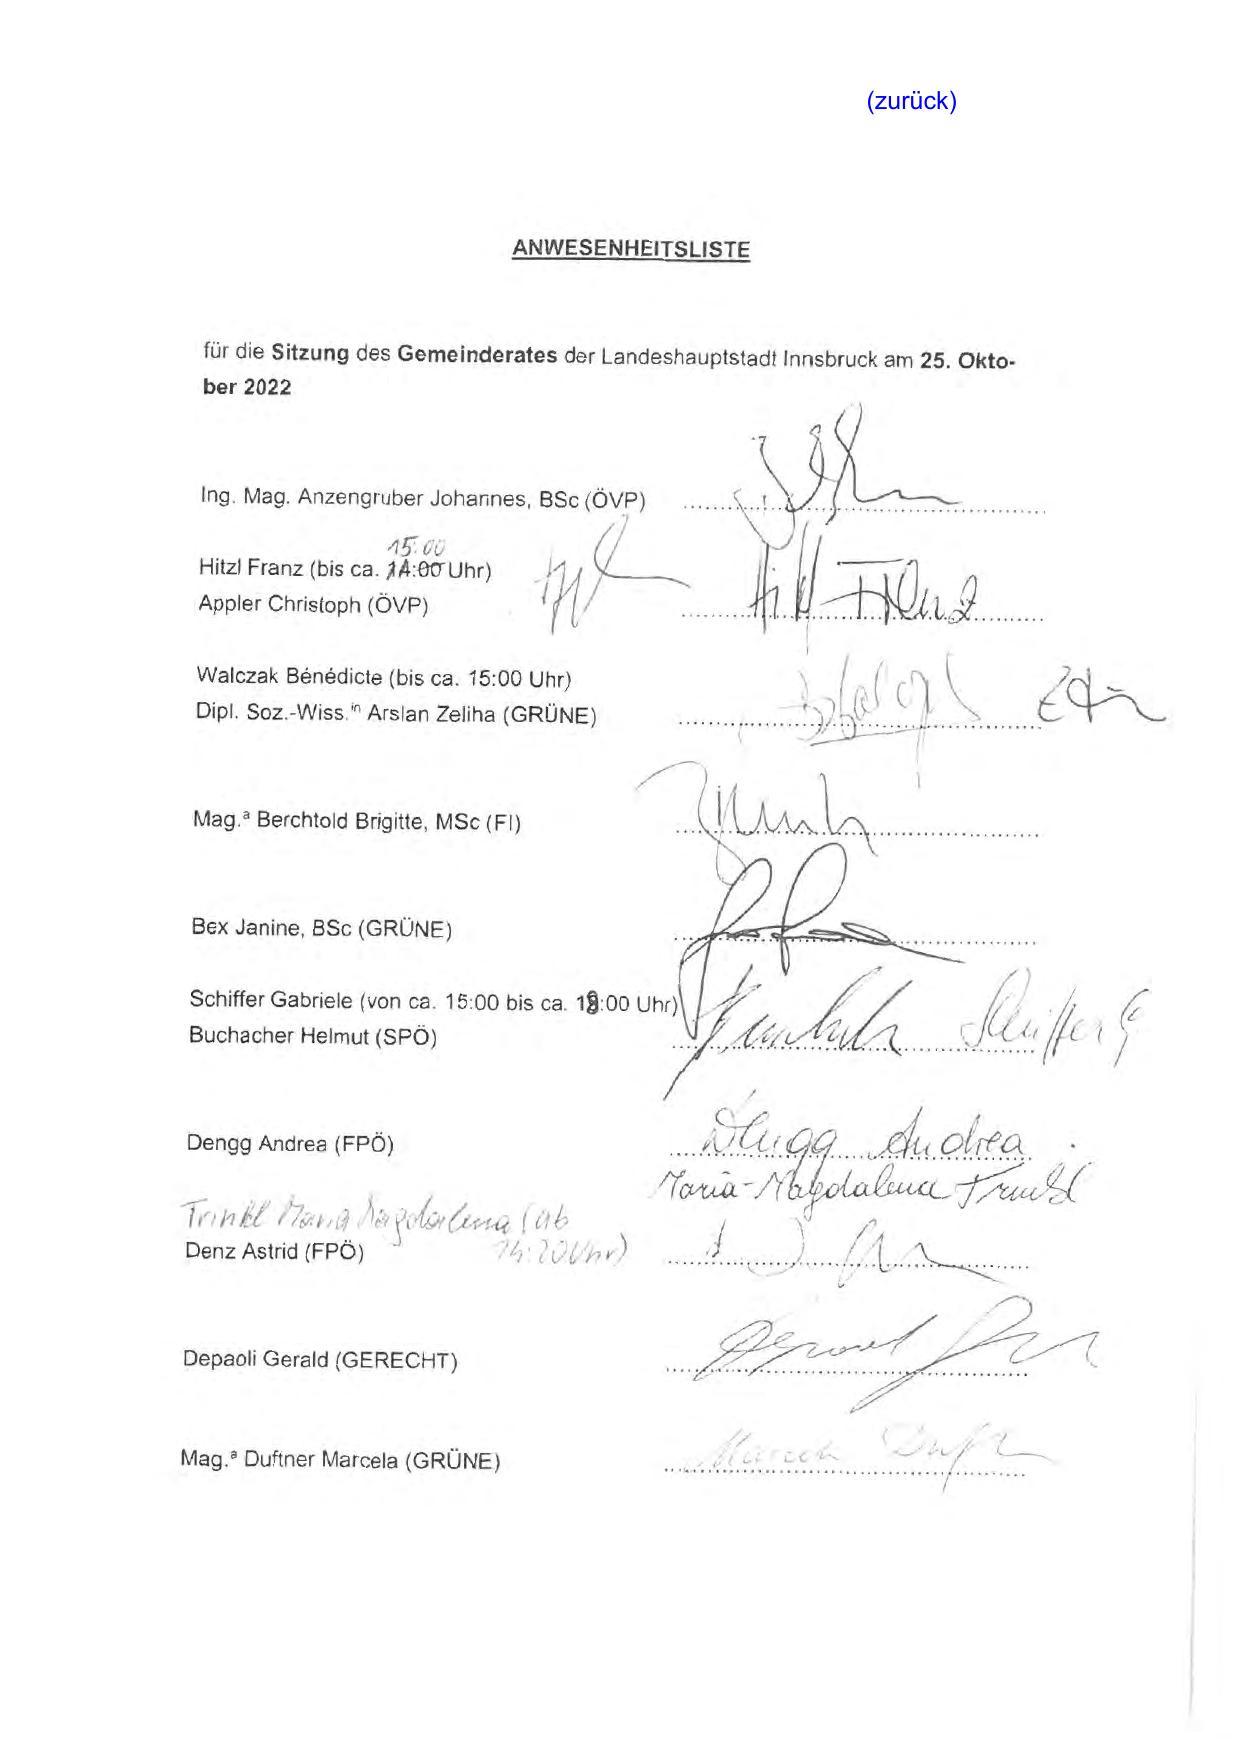 (zurück)
ANWESENHEITSLISTE
für die Sitzung des Gemeinderates der Landeshauptstadt Innsbruck am 25. Okto-
ber 2022
Ing. Mag. Anzengruber Johannes, BSc (ÖVP)
15:00
Hitzl Franz (bis ca. 14:00 Uhr)
Appler Christoph (ÖVP)
Hitzl Franz
Walczak Bénédicte (bis ca. 15:00 Uhr)
Dipl. Soz.-Wiss.in Arslan Zeliha (GRÜNE)
Mag.a Berchtold Brigitte, MSc (FI)
Bex Janine, BSc (GRÜNE)
Schiffer Gabriele (von ca. 15:00 bis ca. 18:00 Uhr)
Buchacher Helmut (SPÖ)
Schiffer G
Dengg Andrea (FPÖ)
Dengg Andrea
Maria-Magdalena Trinkl
Trinkl Maria Magdalena (ab
14:20 Uhr)
Denz Astrid (FPÖ)
Depaoli Gerald (GERECHT)
Gerald
Mag.a Duftner Marcela (GRÜNE)
Marcela Duft